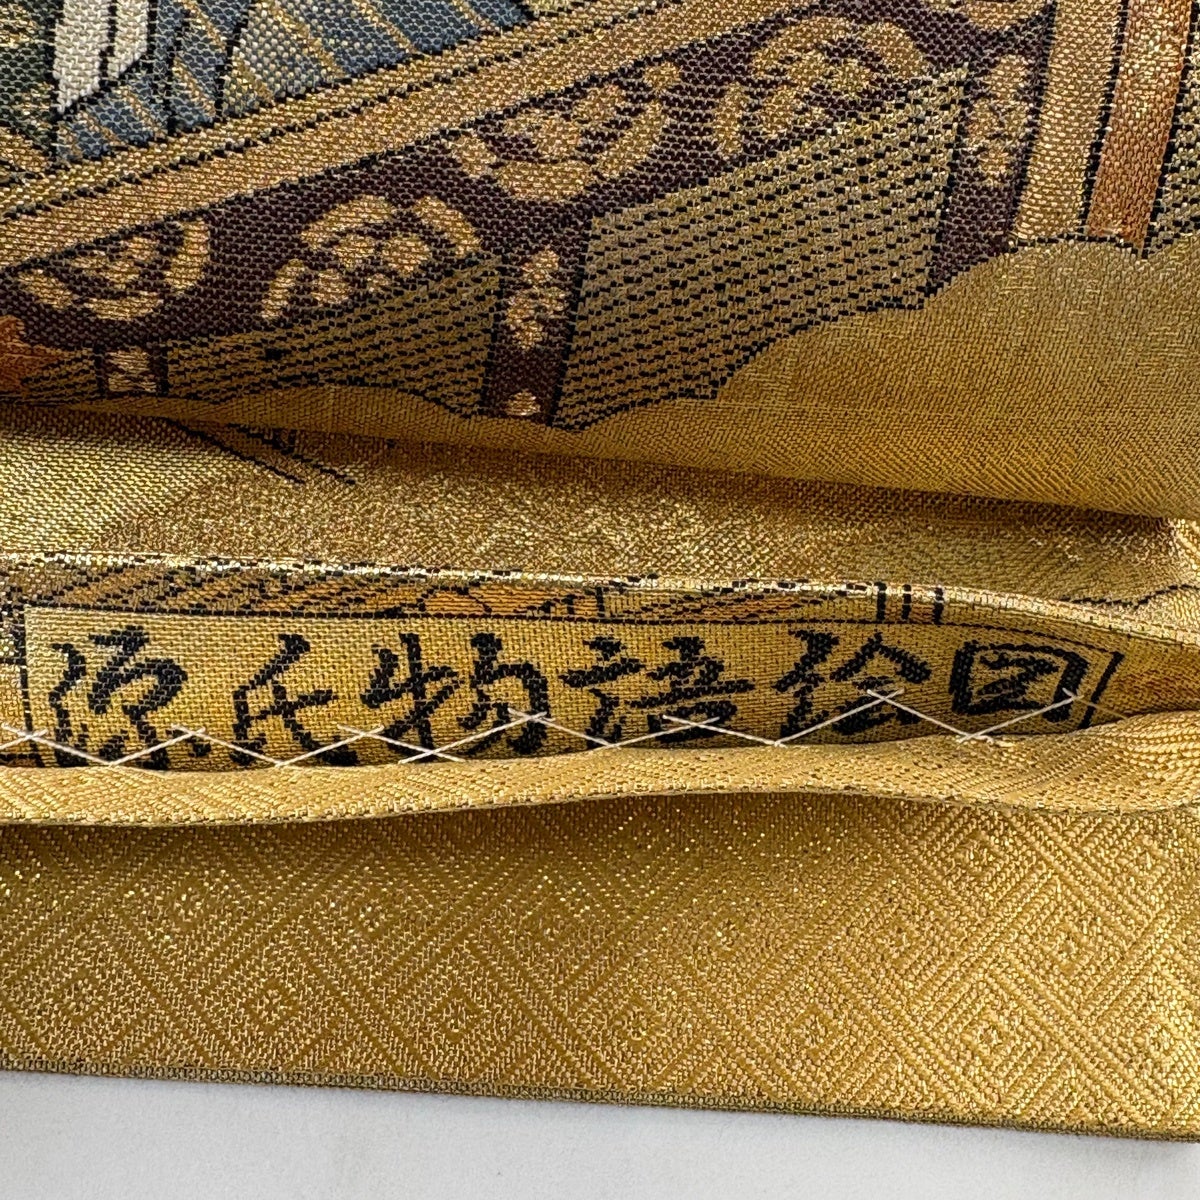 源氏物語絵図